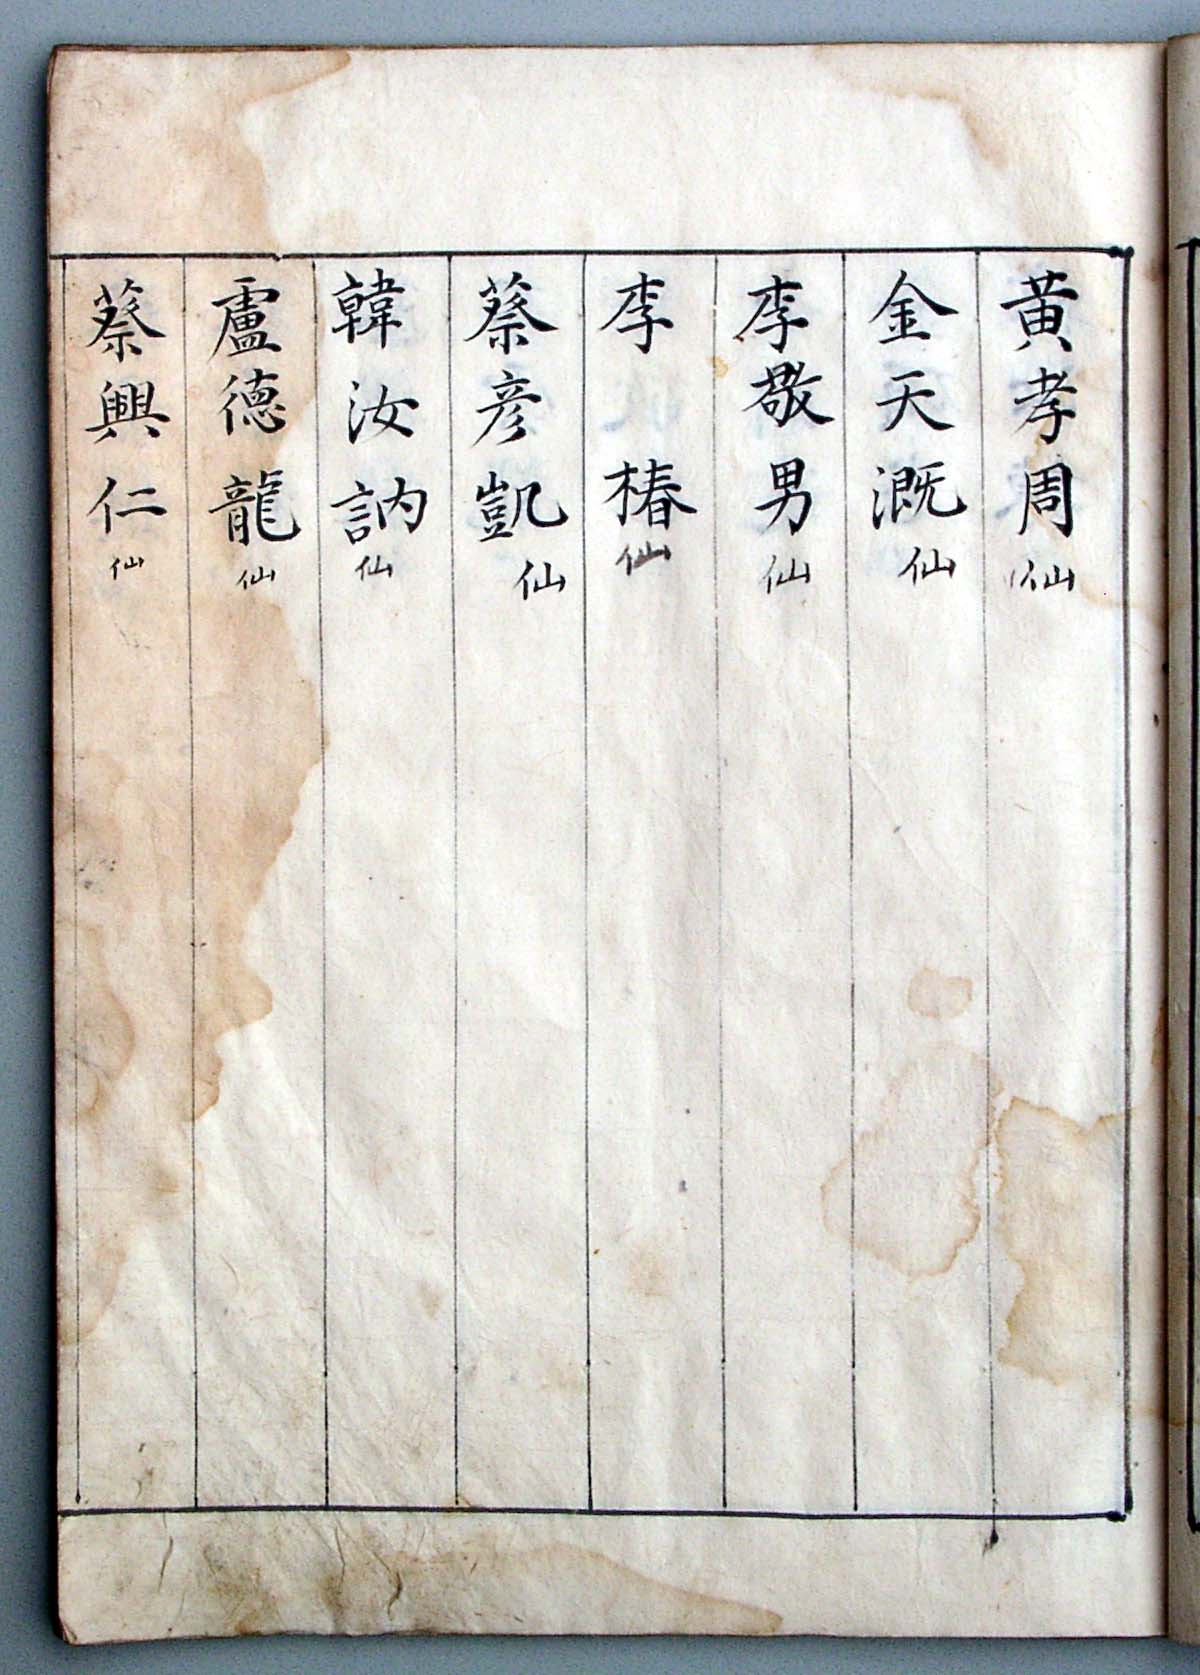 黃孝周仙
金天漑仙
李敬男仙
李椿仙
蔡彦凱仙
韓汝訥仙
盧德龍仙
蔡興仁仙